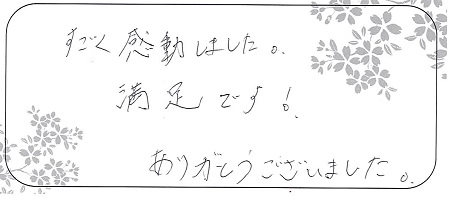 すごく感動しました。
満足です!
ありがとうございました。